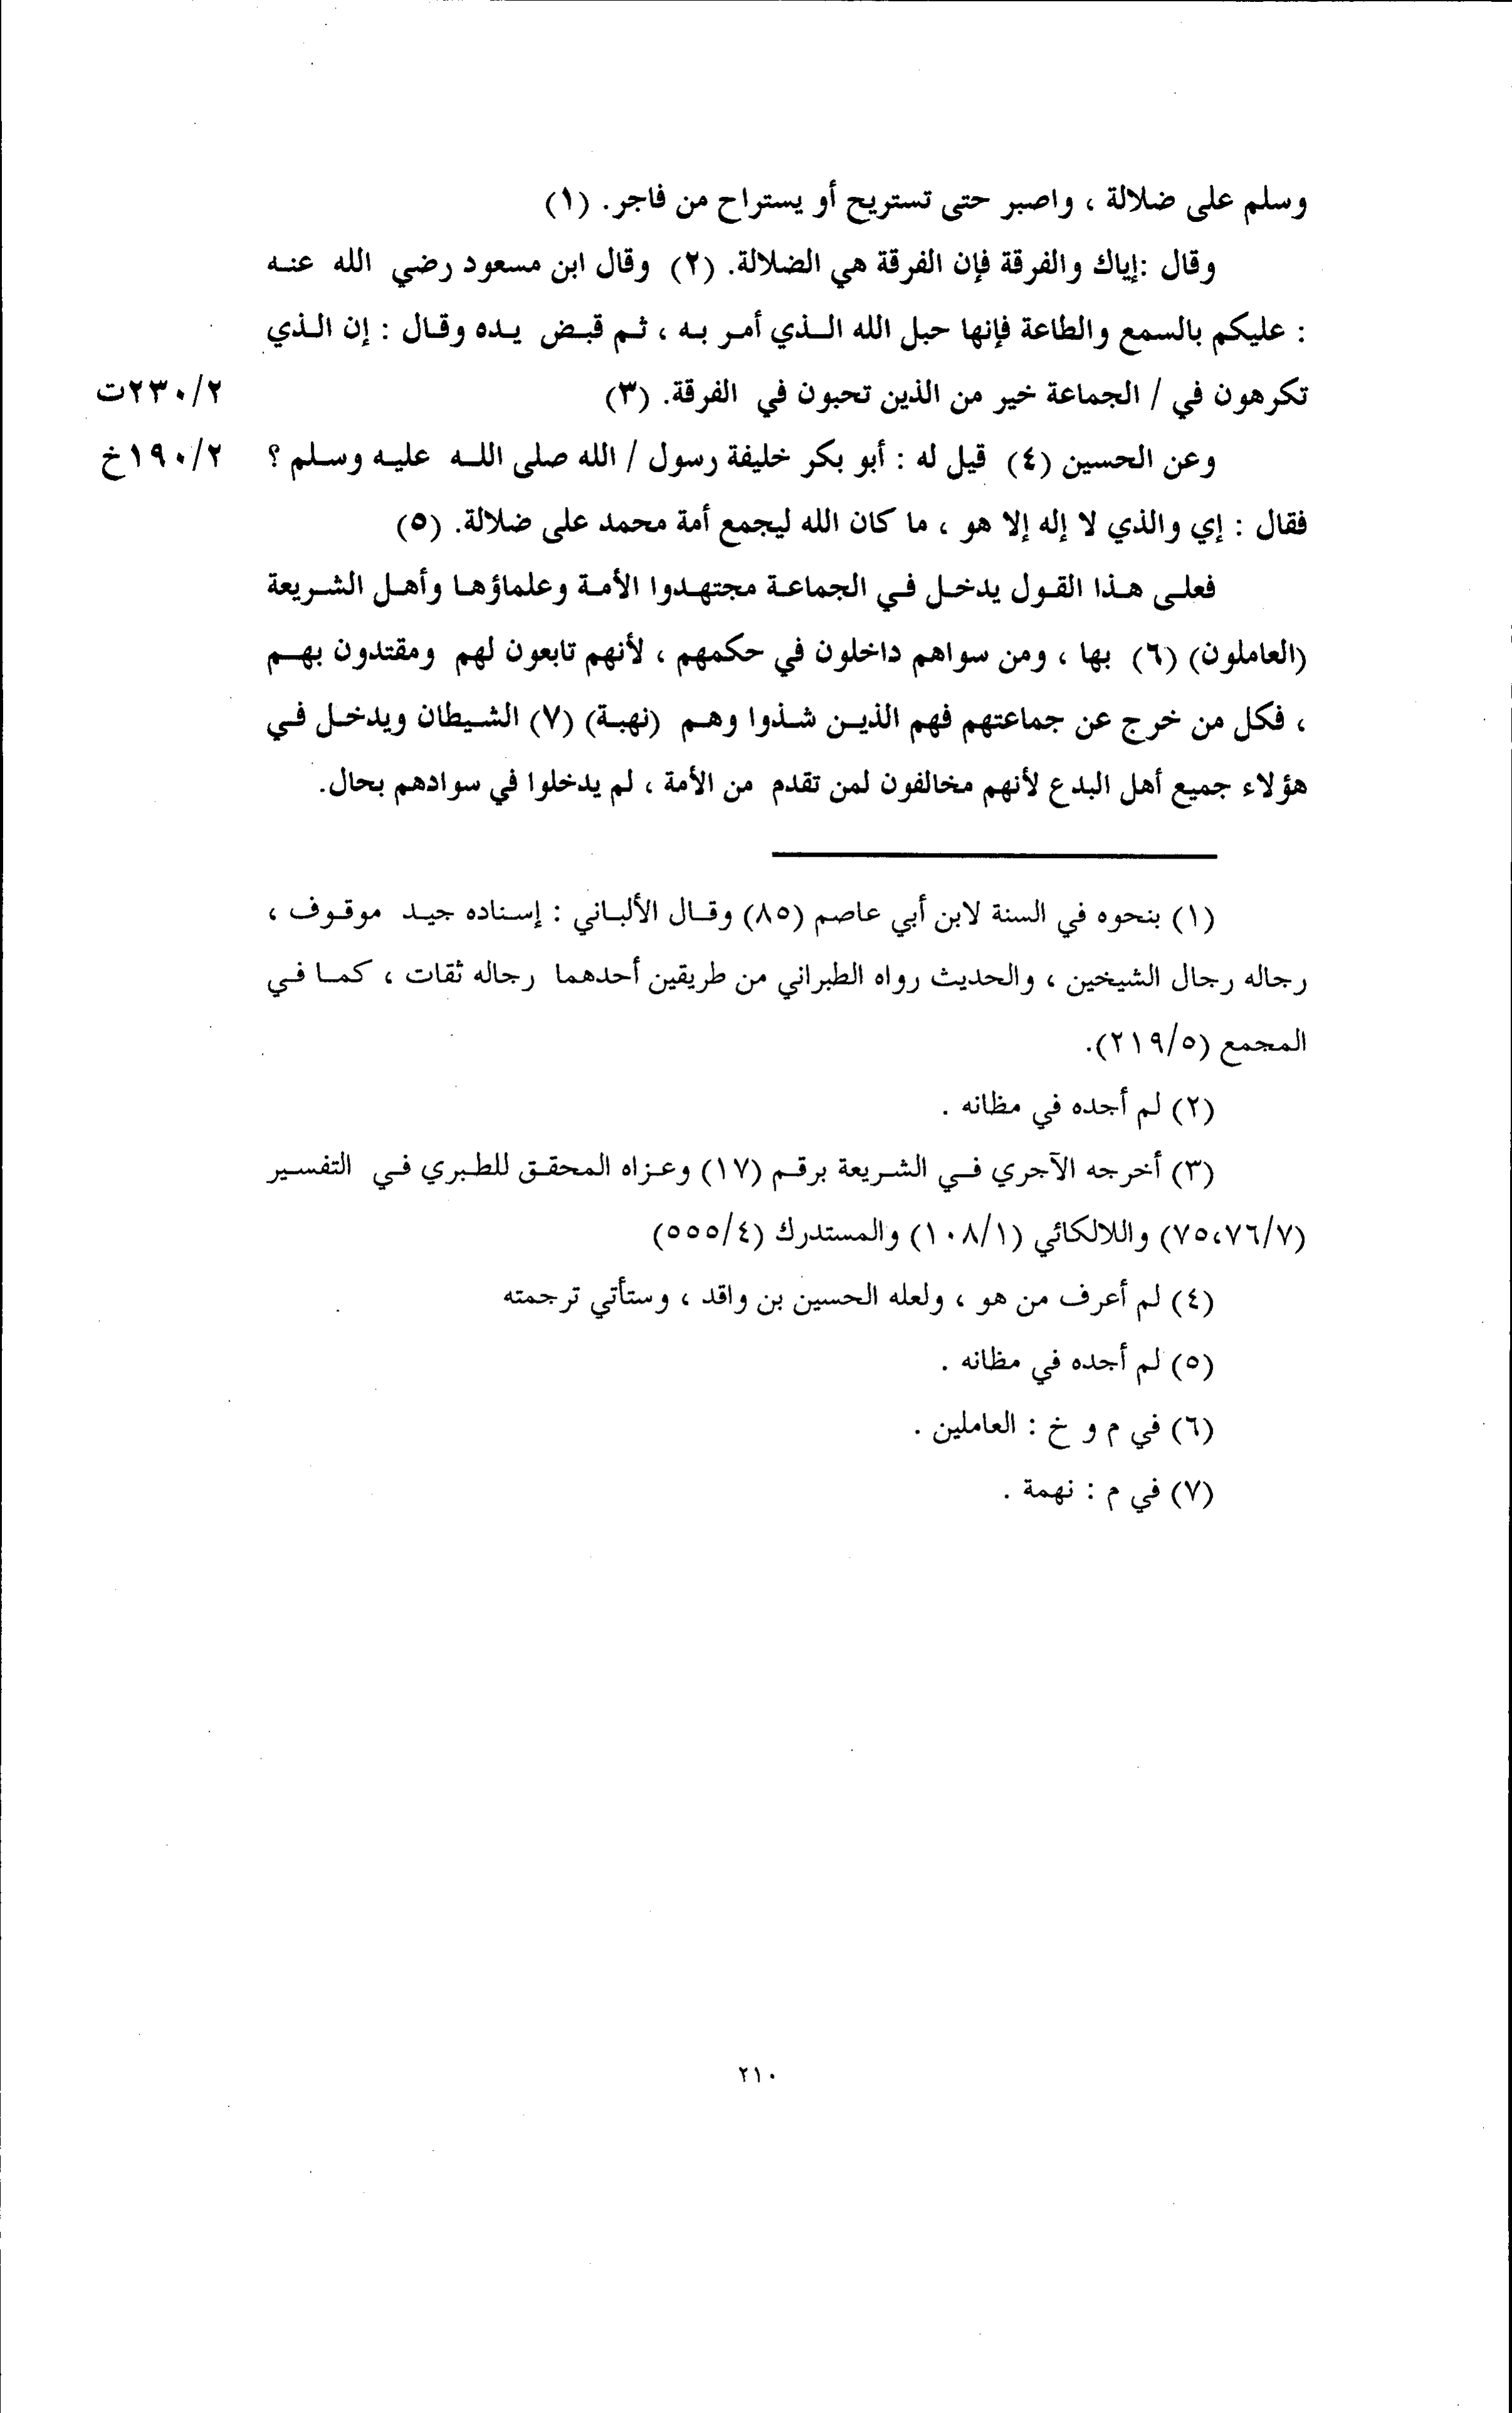 وسلم على ضلالة ، واصبر حتى تستريح أو يستراح من فاجر. (١)
وقال :إياك والفرقة فإن الفرقة هي الضلالة. (٢) وقال ابن مسعود رضي الله عنه
: عليكم بالسمع والطاعة فإنها حبل الله الذي أمر به ، ثم قبض يده وقال : إن الذي
تكرهون في / الجماعة خير من الذين تحبون في الفرقة. (٣) ٢٣٠/٢ت
وعن الحسين (٤) قيل له : أبو بكر خليفة رسول / الله صلى الله عليه وسلم ؟ ١٩٠/٢خ
فقال : إي والذي لا إله إلا هو ، ما كان الله ليجمع أمة محمد على ضلالة. (٥)
فعلى هذا القول يدخل في الجماعة مجتهدوا الأمة وعلماؤها وأهل الشريعة
(العاملون) (٦) بها ، ومن سواهم داخلون في حكمهم ، لأنهم تابعون لهم ومقتدون بهم
، فكل من خرج عن جماعتهم فهم الذين شذوا وهم (نهبة) (٧) الشيطان ويدخل في
هؤلاء جميع أهل البدع لأنهم مخالفون لمن تقدم من الأمة ، لم يدخلوا في سوادهم بحال.
(١) بنحوه في السنة لابن أبي عاصم (٨٥) وقال الألباني : إسناده جيد موقوف ،
رجاله رجال الشيخين ، والحديث رواه الطبراني من طريقين أحدهما رجاله ثقات ، كما في
المجمع (٢١٩/٥).
(٢) لم أجده في مظانه .
(٣) أخرجه الآجري في الشريعة برقم (١٧) وعزاه المحقق للطبري في التفسير
(٧٥،٧٦/٧) واللالكائي (١٠٨/١) والمستدرك (٥٥٥/٤)
(٤) لم أعرف من هو ، ولعله الحسين بن واقد ، وستأتي ترجمته
(٥) لم أجده في مظانه .
(٦) في م و خ : العاملين .
(٧) في م : نهمة .
٢١٠